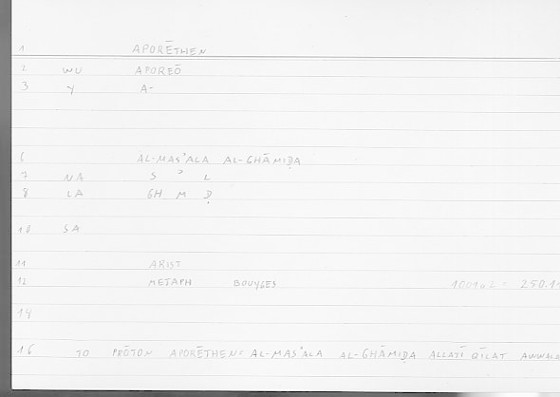 1 APORĒTHEN
2 WU APOREŌ
3 Y A-
6 AL-MASʾALA AL-GHĀMIḌA
7 NA S ʾ L
8 LA GH M Ḍ
10 SA
11 ARIST
12 METAPH BOUYGES 1001a2 = 250.1
14
16 TO PRŌTON APORĒTHEN: AL-MASʾALA AL-GHĀMIḌA ALLATĪ QĪLAT